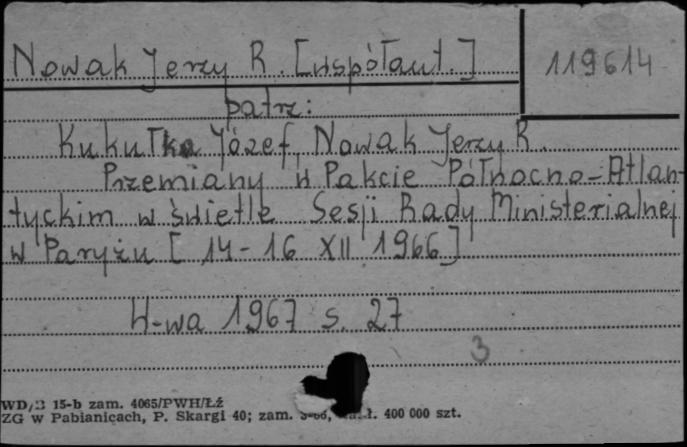 Nowak Jerzy R. [współaut.] 119614
patrz:
Kukułka Józef, Nowak Jerzy R.
Przemiany w Pakcie Północno-Atlan-
tyckim w świetle Sesji Rady Ministerialnej
w Paryżu [14-16 XII 1966]
W-wa 1967 s. 27
3
WD/3 15-b zam. 4065/PWH/Łź
ZG w Pabianicach, P. Skargi 40; zam. 400 000 szt.